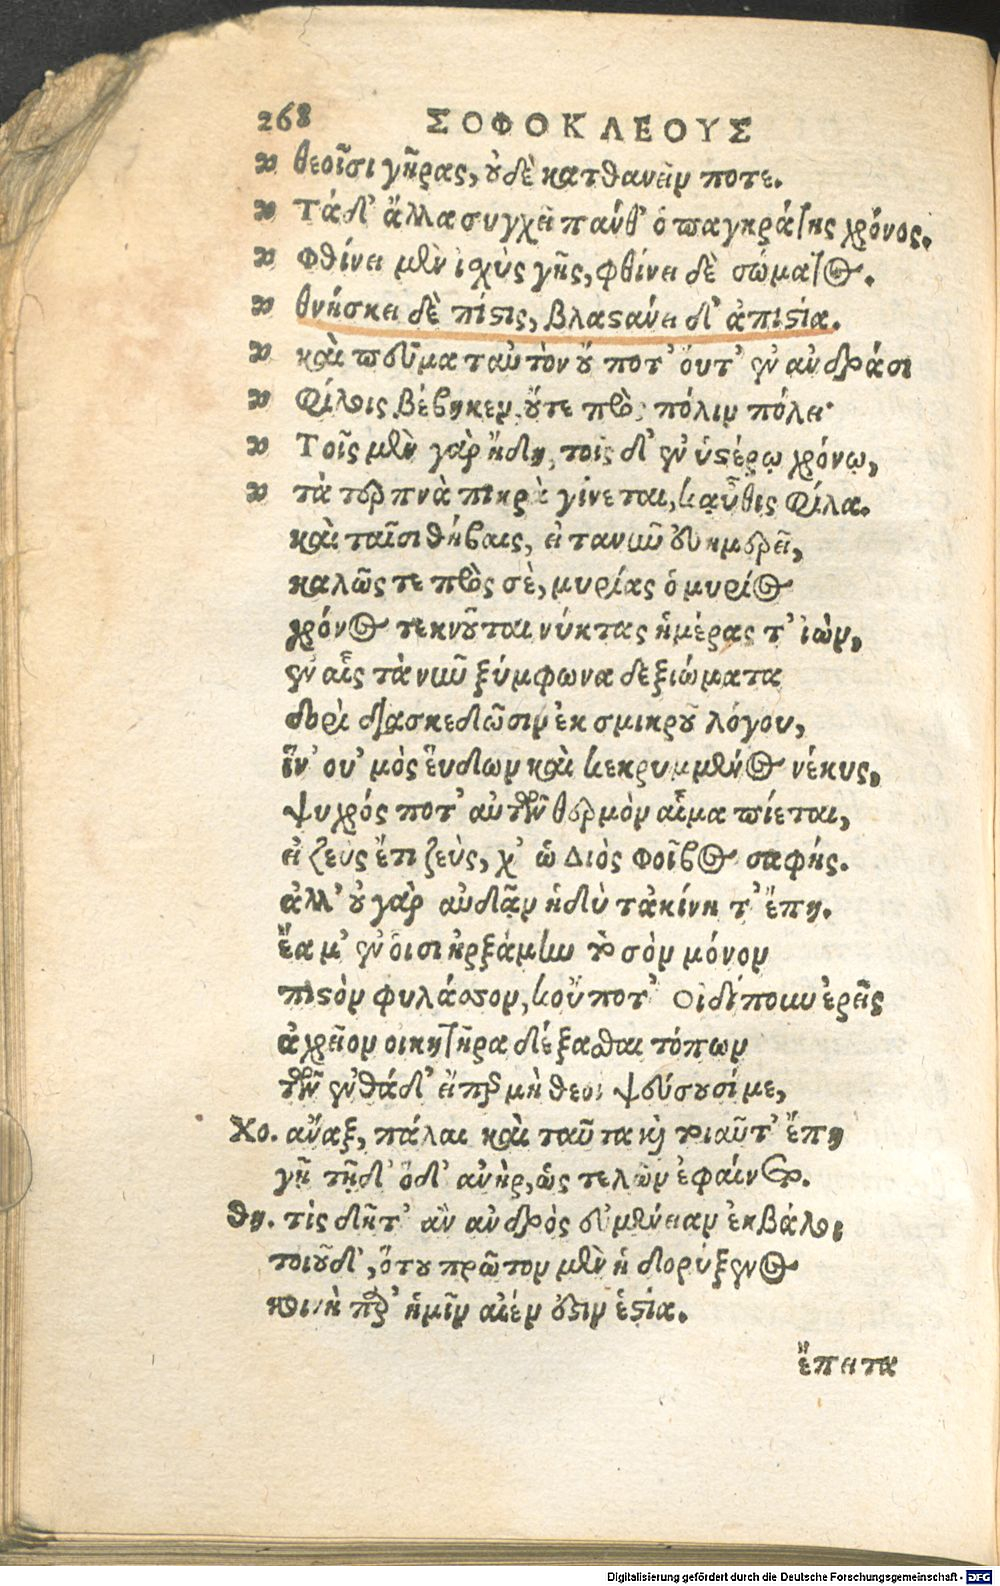 268 ΣΟΦΟΚΛΕΟΥΣ
„ θεοῖσι γῆρας, οὐδὲ κατθανεῖν ποτε.
„ Τὰ δ' ἄλλα συγχεῖ πάνθ' ὁ παγκράτης χρόνος.
„ Φθίνει μὲν ἰσχὺς γῆς, φθίνει δὲ σώματος.
„ θνήσκει δὲ πίστις, βλαστάνει δ' ἀπιστία.
„ καὶ πνεῦμα ταὐτὸν οὔ ποτ' οὔτ' ἐν ἀνδράσι
„ Φίλοις βέβηκεν, οὔτε πρὸς πόλιν πόλει·
„ Τοῖς μὲν γὰρ ἤδη, τοῖς δ' ἐν ὑστέρῳ χρόνῳ,
„ τὰ τερπνὰ πικρὰ γίνεται, καὖθις φίλα.
καὶ ταῖσι θήβαις, εἰ τανῦν εὐημερεῖ,
καλῶς τε πρὸς σὲ, μυρίας ὁ μυρίος
χρόνος τεκνοῦται νύκτας ἡμέρας τ' ἰὼν,
ἐν αἷς τὰ νῦν ξύμφωνα δεξιώματα
δορὶ διασκεδῶσιν ἐκ σμικροῦ λόγου,
ἵν' οὑ' μὸς εὕδων καὶ κεκρυμμένος νέκυς,
ψυχρός ποτ' αὐτῶν θερμὸν αἷμα πίεται,
εἰ ζεὺς ἔτι ζεὺς, χ' ὡ Διὸς Φοῖβος σαφής.
ἀλλ' οὐ γὰρ αὐδᾷν ἡδὺ τἀκίνητ' ἔπη.
ἔα μ' ἐν οἷσι ἠρξάμην τὸ σὸν μόνον
πιστὸν φυλάσσον, κοὔποτ' Οἰδίπουν ἐρεῖς
ἀχρεῖον οἰκητῆρα δέξασθαι τόπων
τῶν ἐνθάδ' εἴπερ μὴ θεοὶ ψεύσουσί με,
Χο. ἄναξ, πάλαι καὶ ταῦτα καὶ τοιαῦτ' ἔπη
γῇ τῇδ' ὅδ' ἀνὴρ, ὡς τελῶν ἐφαίνετο.
Θη. τίς δῆτ' ἂν ἀνδρὸς εὐμένειαν ἐκβάλοι
τοιοῦδ', ὅτου πρῶτον μὲν ἡ δορύξενος
κοινὴ παρ' ἡμῖν αἰέν ἐστιν ἑστία.
ἔπειτα
Digitalisierung gefördert durch die Deutsche Forschungsgemeinschaft - DFG